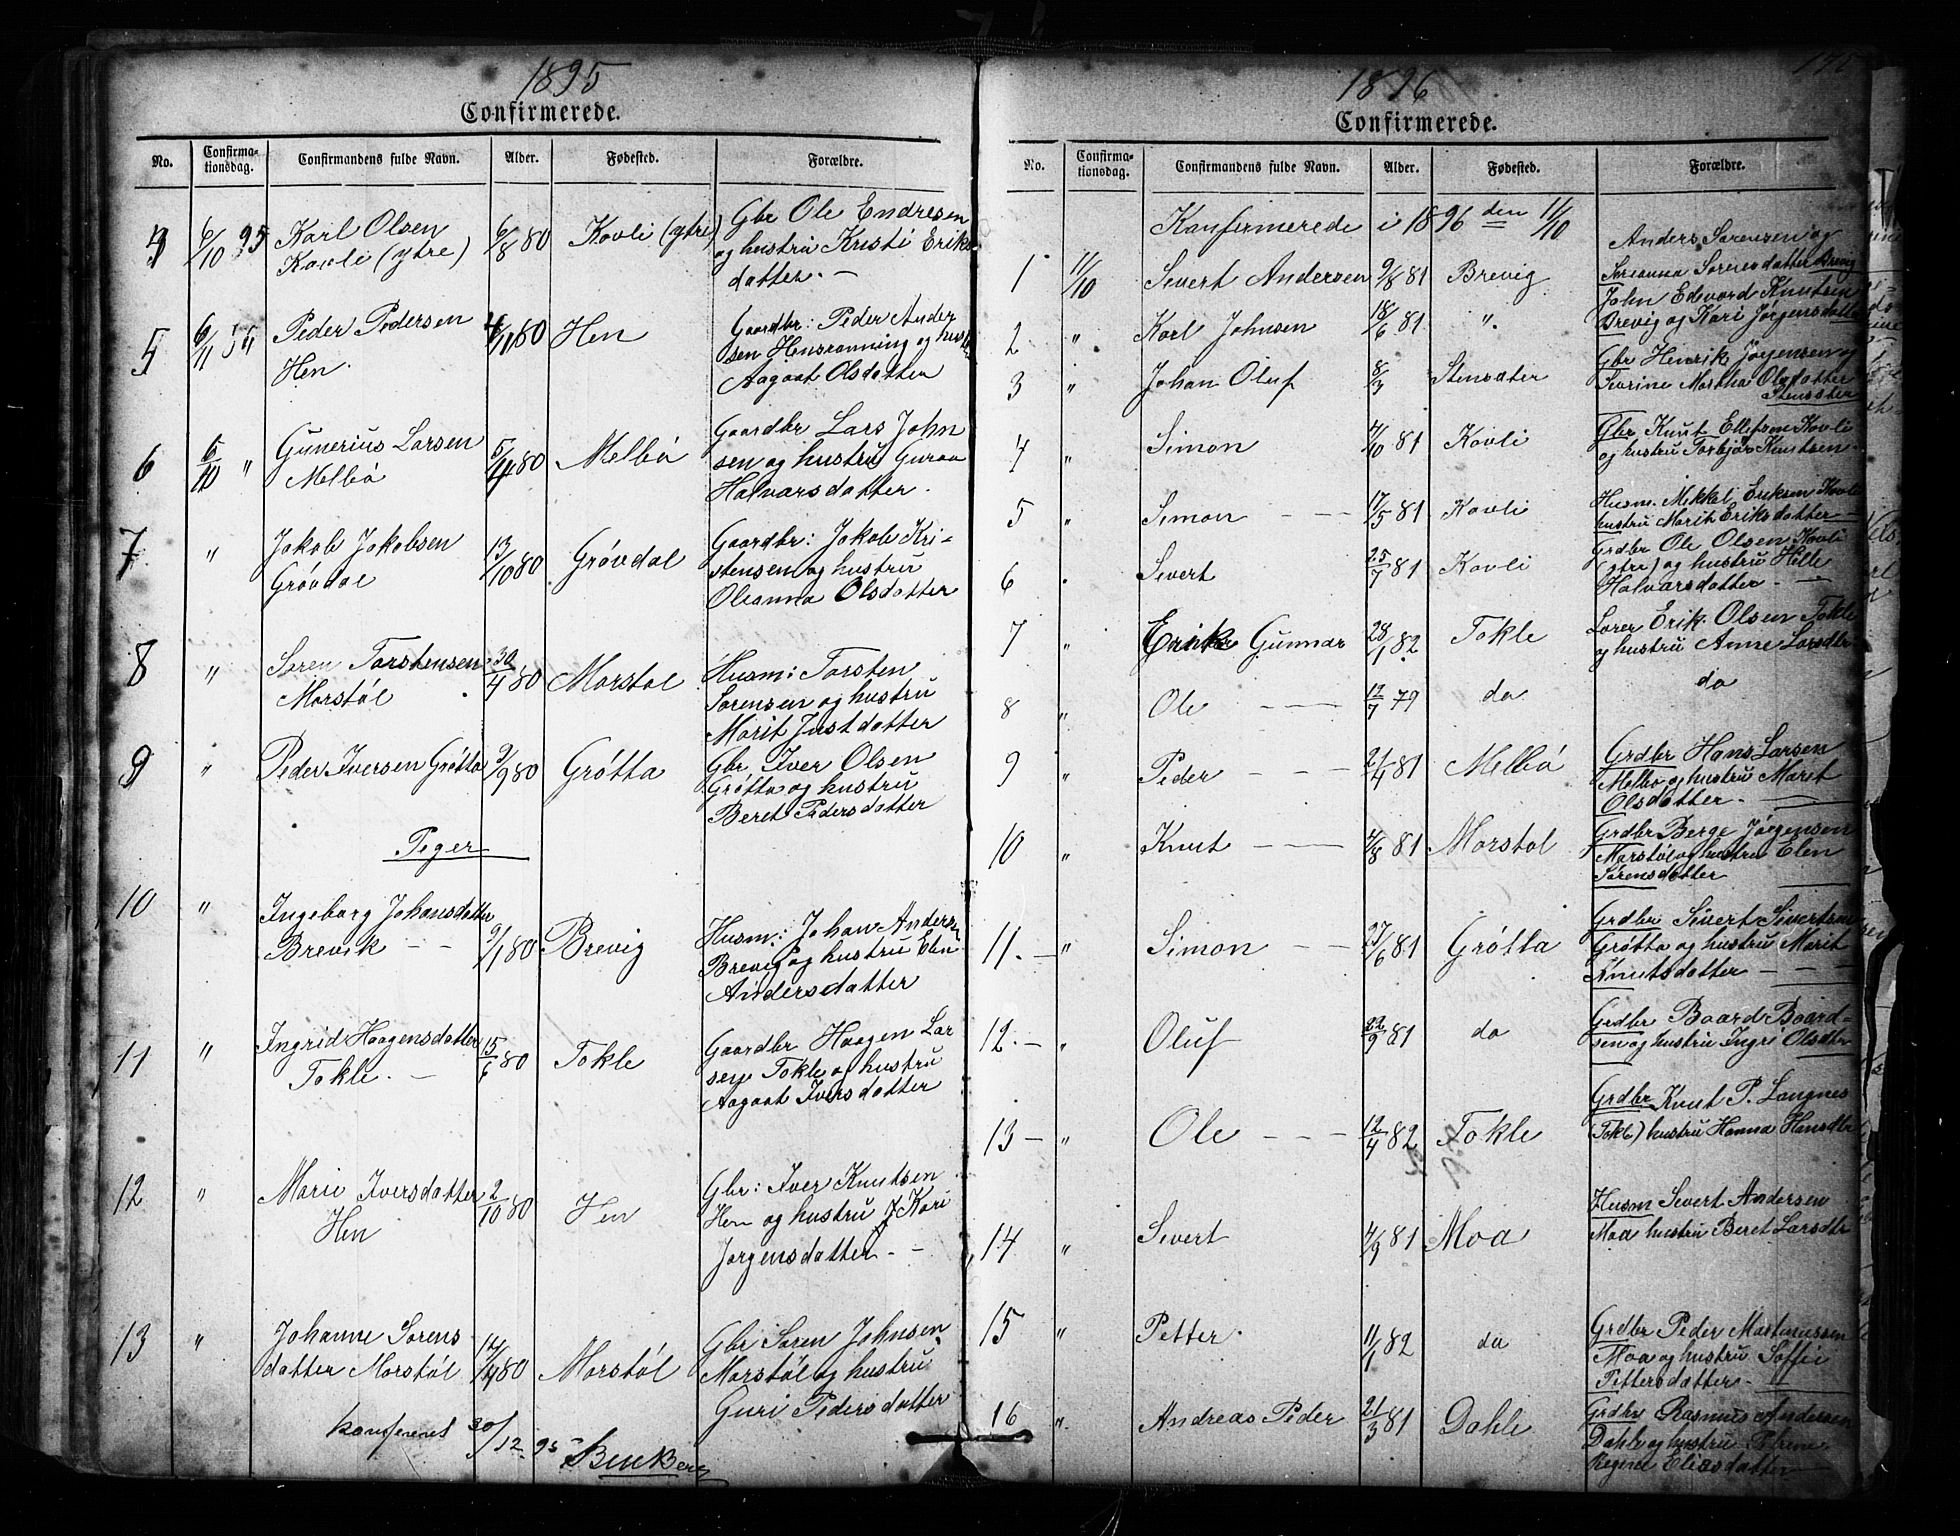 1895
Confirmerede.
No. Confirma-tionsdag. Confirmandens fulde Navn. Alder. Fødested. Forældre.
4 6/10 95 Karl Olsen 6/8 80 Kavli (ytre) Gbr Ole Endresen
Kavli (ytre) og hustru Kristi Eriks
datter. —
5 Peder Pedersen 80 Hen Gaardbr: Peder Ander
Hen. sen Hensrønning og hust
Aagaat Olsdatter
6 6/10 " Gunerius Larsen 80 Melbø Gaardbr Lars John
Melbø sen og hustru Guroa
Halvarsdatter.
7 " Jakob Jakobsen 13/10 80 Grøvdal Gaardbr: Jakob Kri-
Grøvdal stensen og hustru
Oleanna Olsdatter
8 " Søren Torstensen 30/4 80 Morstøl Husm: Torsten
Morstøl Sørensen og hustru
Marit Justdatter
9 " Peder Iversen Grøtta 9/9 80 Grøtta Gbr Iver Olsen
Grøtta og hustru
Beret Pedersdatter
Piger
10 " Ingeborg Johansdatter
Brevik — — 9/1 80 Brevig Husm: Johan Andersen
Brevig og hustru Elen
Andersdatter
11 " Ingrid Haagensdatter 15/6 80 Tokle Gaardbr Haagen Lar
Tokle. — sen Tokle og hustru
Aagaat Iversdatter
12 " Marie Iversdatter 2/10 80 Hen Gbr: Iver Knutsen
Hen Hen og hustru Kari
Jørgensdatter — —
13 " Johanne Sørens 80 Morstøl Gbr Søren Johnsen
datter Morstøl Morstøl og hustru
Guri Pedersdatter
Konfereret 30/12 95
1896
Confirmerede.
No. Confirma-tionsdag. Confirmandens fulde Navn. Alder. Fødested. Forældre.
Konfirmerede i 1896 den 11/10
1 11/10 Sivert Andersen 9/8 81 Brevig Anders Sørensen og
Søreanna Sørensdatter Brevig
2 " Karl Johnsen 18/6 81 " John Edvard Knutsen
Brevig og Kari Jørgensdatter
3 " Johan Oluf 8/3 Stensæter Gbr Henrik Jørgensen og
Severine Martha Olsdatter
Stensæter
4 " Simon 4/10 81 Kavli Gbr Knut Ellefsen Kavli
og hustru Torbjør Knutsen
5 " Simon — — 17/5 81 Kavli Husm. Mikkel Eriksen Kavli
hustru Marit Eriksdatter —
6 " Sivert 25/7 81 Kavli Grdbr Ole Olsen Kavli
(ytre) og hustru Helle
Halvarsdatter. —
7 " Erik Gunnar 28/1 82 Tokle Lærer Erik Olsen Tokle
og hustru Anne Larsdtr
8 " Ole — — 12/7 79 do do
9 " Peder — — — 21/4 81 Melbø Grdbr Hans Larsen
Melbø og hustru Marit
Olsdatter. —
10 " Knut — — — 4/8 81 Morstøl Grdbr Berge Jørgensen
Morstøl og hustru Elen
Sørensdatter —
11. — " Simon — — 27/6 81 Grøtta Grdbr Sivert Sivertsen
Grøtta og hustru Marit
Knutsdatter — — —
12. — " Oluf 22/9 81 do Grdbr Baard Baard-
sen og hustru Ingri Olsdtr
13 — " Ole — — — 12/4 82 Tokle Grdbr Knut P. Langnes
(Tokle) hustru Hanna Hansdtr
14 " Sivert 4/9 81 Moa Husm Sivert Andersen
Moa hustru Beret Larsdtr
15 " Petter. 11/1 82 do Grdbr Peder Martinussen
Moa og hustru Soffie
Pettersdatter —
16 " Andreas Peder 21/3 81 Dahle Grdbr Rasmus Andersen
Dahle og hustru
Regine Eliasdatter —